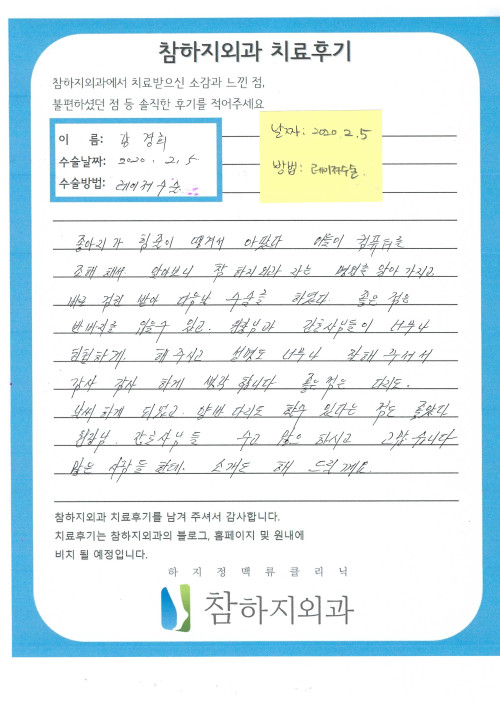 참하지외과 치료후기
참하지외과에서 치료받으신 소감과 느낀 점,
불편하셨던 점 등 솔직한 후기를 적어주세요
이 름: 김 경희
수술날짜: 2020. 2. 5
수술방법: 레이저수술
날짜: 2020 2.5
방법: 레이저수술.
종아리가 힘줄이 땡겨서 아팠다 아들이 컴퓨터를
조회 해서 알아보니 참 하지외과 라는 병원을 알아 가지고.
바로 검진 받아 다음날 수술을 하였다 좋은 점은
반바지를 입을수 있고. 원장님과 간호사님들이 너무나
친절하게. 해 주시고 설명도 너무나 잘해 주셔서
감사 감사 하게 생각 합니다 좋은 점은 다리도.
하게 되었고. 양반 다리도 할수 있다는 점도 좋았다
원장님. 간호사님들 수고 많으 하시고 고맙습니다
많은 사람들 한테. 소개도 해 드릴게요.
참하지외과 치료후기를 남겨 주셔서 감사합니다.
치료후기는 참하지외과의 블로그, 홈페이지 및 원내에
비치 될 예정입니다.
하지정맥류클리닉
참하지외과